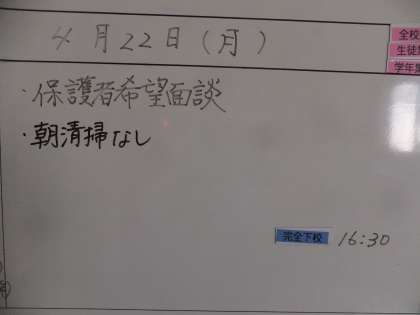 4月22日(月)
全校
生徒
学年
・保護者希望面談
・朝清掃なし
完全下校 16:30